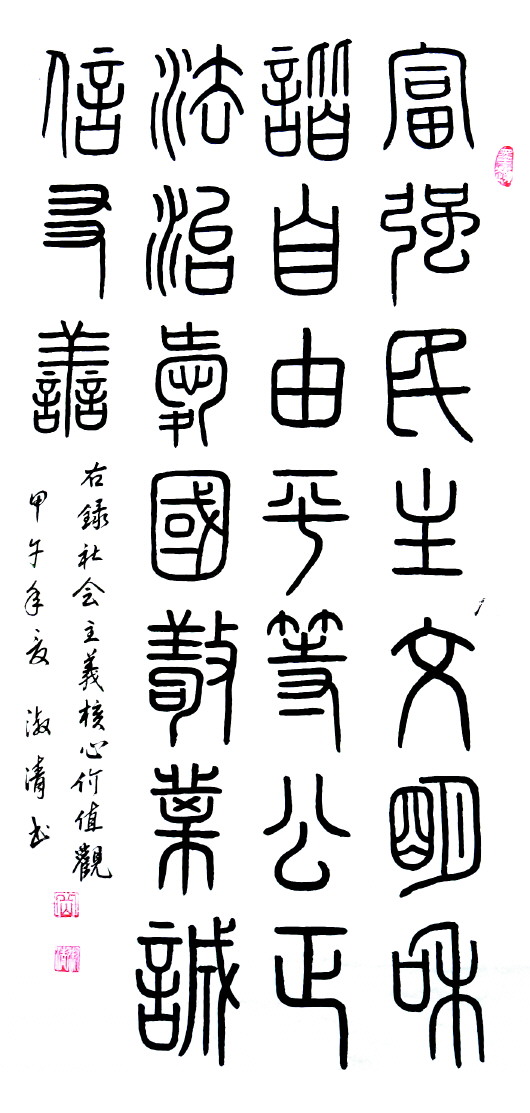 富强民主文明和
諧自由平等公正
法治愛國敬業誠
信友善
右録社会主義核心价值觀
甲午年夏 淑清书